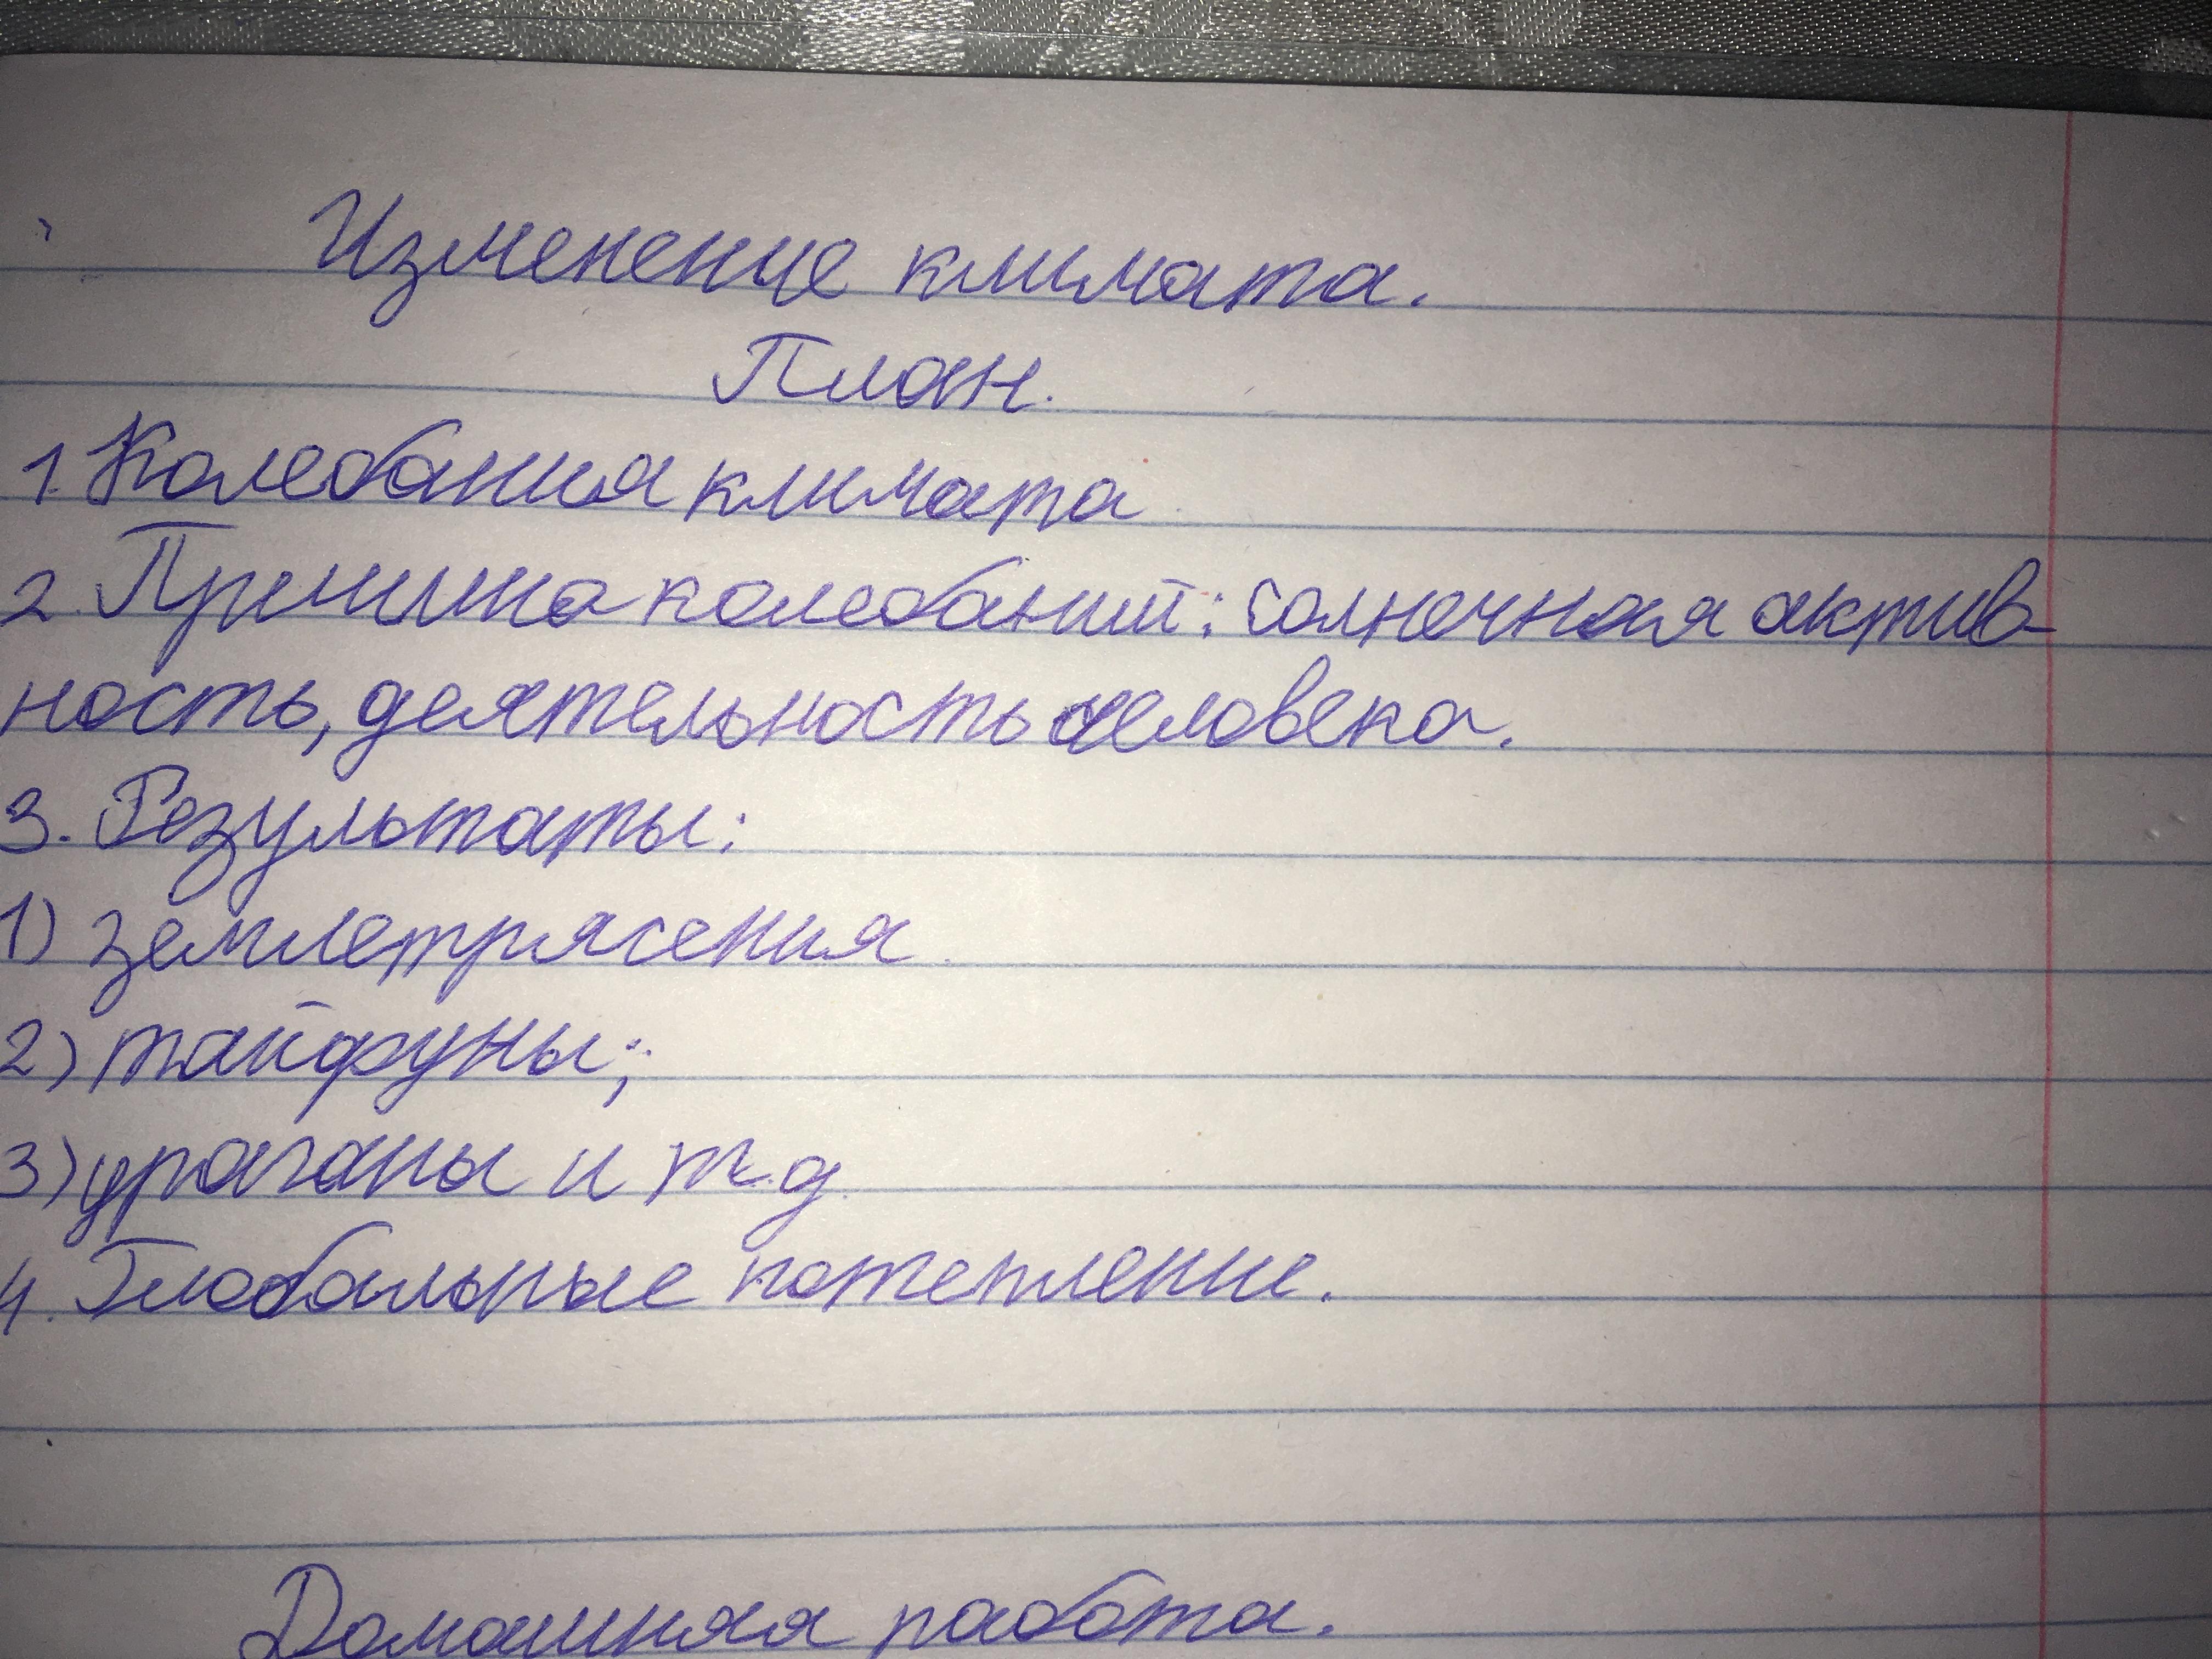 Изменение климата.
План.
1. Колебания климата
2. Причина колебаний: солнечная актив-
ность, деятельность человека.
3. Результаты:
1) землетрясения
2) тайфуны;
3) ураганы и т.д.
4. Глобальные потепление.
Домашняя работа.